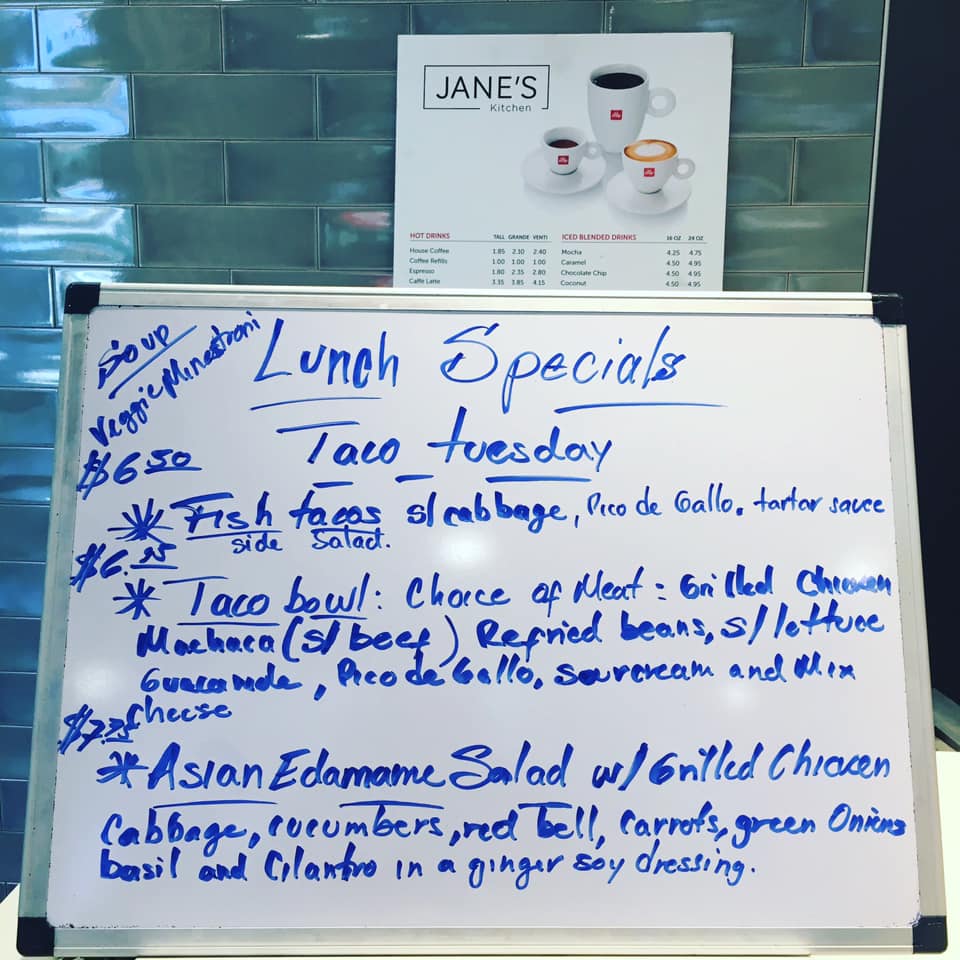 JANE'S
Kitchen
illy
illy
illy
HOT DRINKS TALL GRANDE VENTI
House Coffee 1.85 2.10 2.40
Coffee Refills 1.00 1.00 1.00
Espresso 1.80 2.35 2.80
Caffe Latte 3.35 3.85 4.15
ICED BLENDED DRINKS 16 OZ 24 OZ
Mocha 4.25 4.75
Caramel 4.50 4.95
Chocolate Chip 4.50 4.95
Coconut 4.50 4.95
Soup
Veggie Minestroni
Lunch Specials
Taco tuesday
$6.50
* Fish tacos s/cabbage, Pico de Gallo. tartar sauce
side Salad.
* Taco bowl: Choice of Meat: Grilled Chicken
Machaca (s/beef) Refried beans, s/lettuce
Guacamole, Pico de Gallo, sourcream and Mix
Cheese
$7.75
* Asian Edamame Salad w/ Grilled Chicken
Cabbage, cucumbers, red bell, carrots, green Onions
basil and Cilantro in a ginger soy dressing.